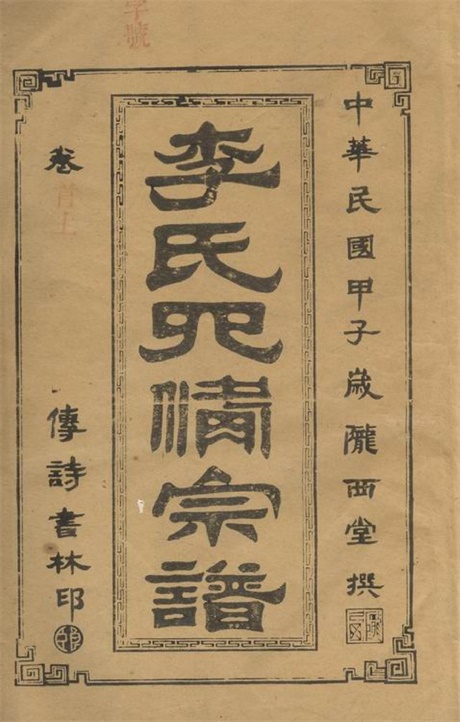 字號
中華民國甲子歲隴西堂撰
李氏四脩宗譜
卷首上
傳詩書林印